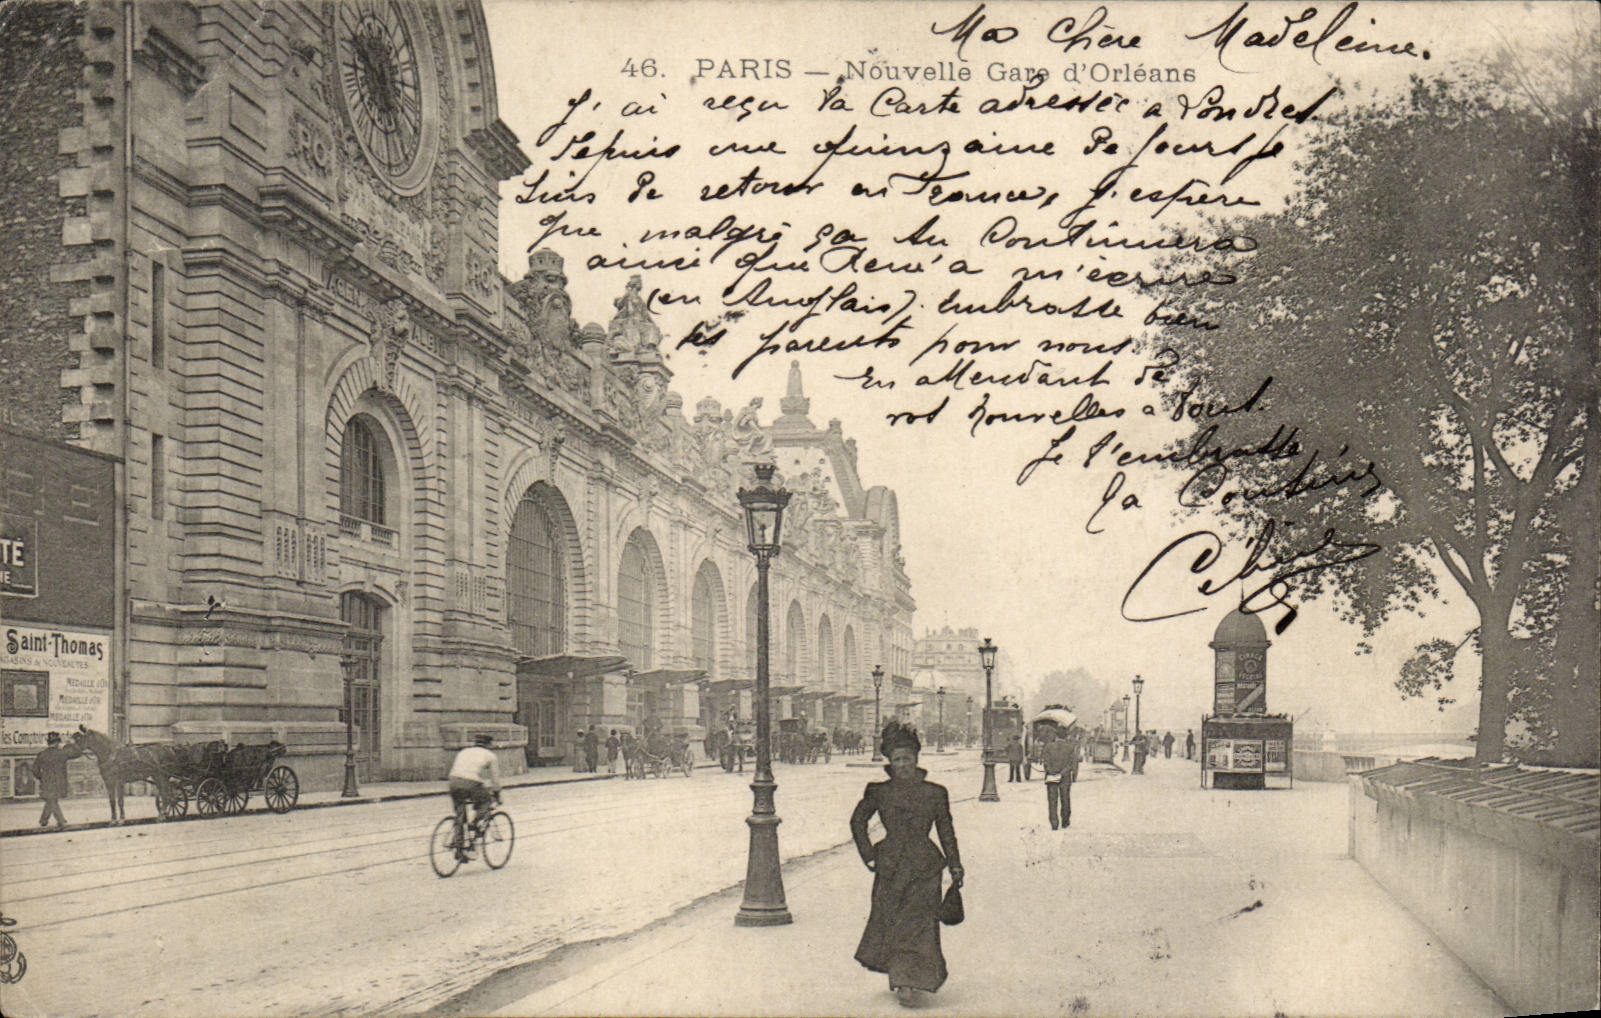 Ma Chère Madeleine.
46. PARIS — Nouvelle Gare d'Orléans
J'ai reçu la Carte adressée a Londres
depuis une quinzaine de jours je
suis de retour en France, j'espère
que malgré ça tu Continuera
ainsi que René a m'écrire
(en Anglais). Embrasse bien
tes parents pour nous.
En attendant de
vos nouvelles a tout.
Je t'embrasse
ta Cousine
PO
PO
AGEN
TÉ
NE
Saint-Thomas
MAGASINS de NOUVEAUTÉS
MÉDAILLE d'OR
MÉDAILLE d'OR
MÉDAILLE d'OR
les Comptoirs